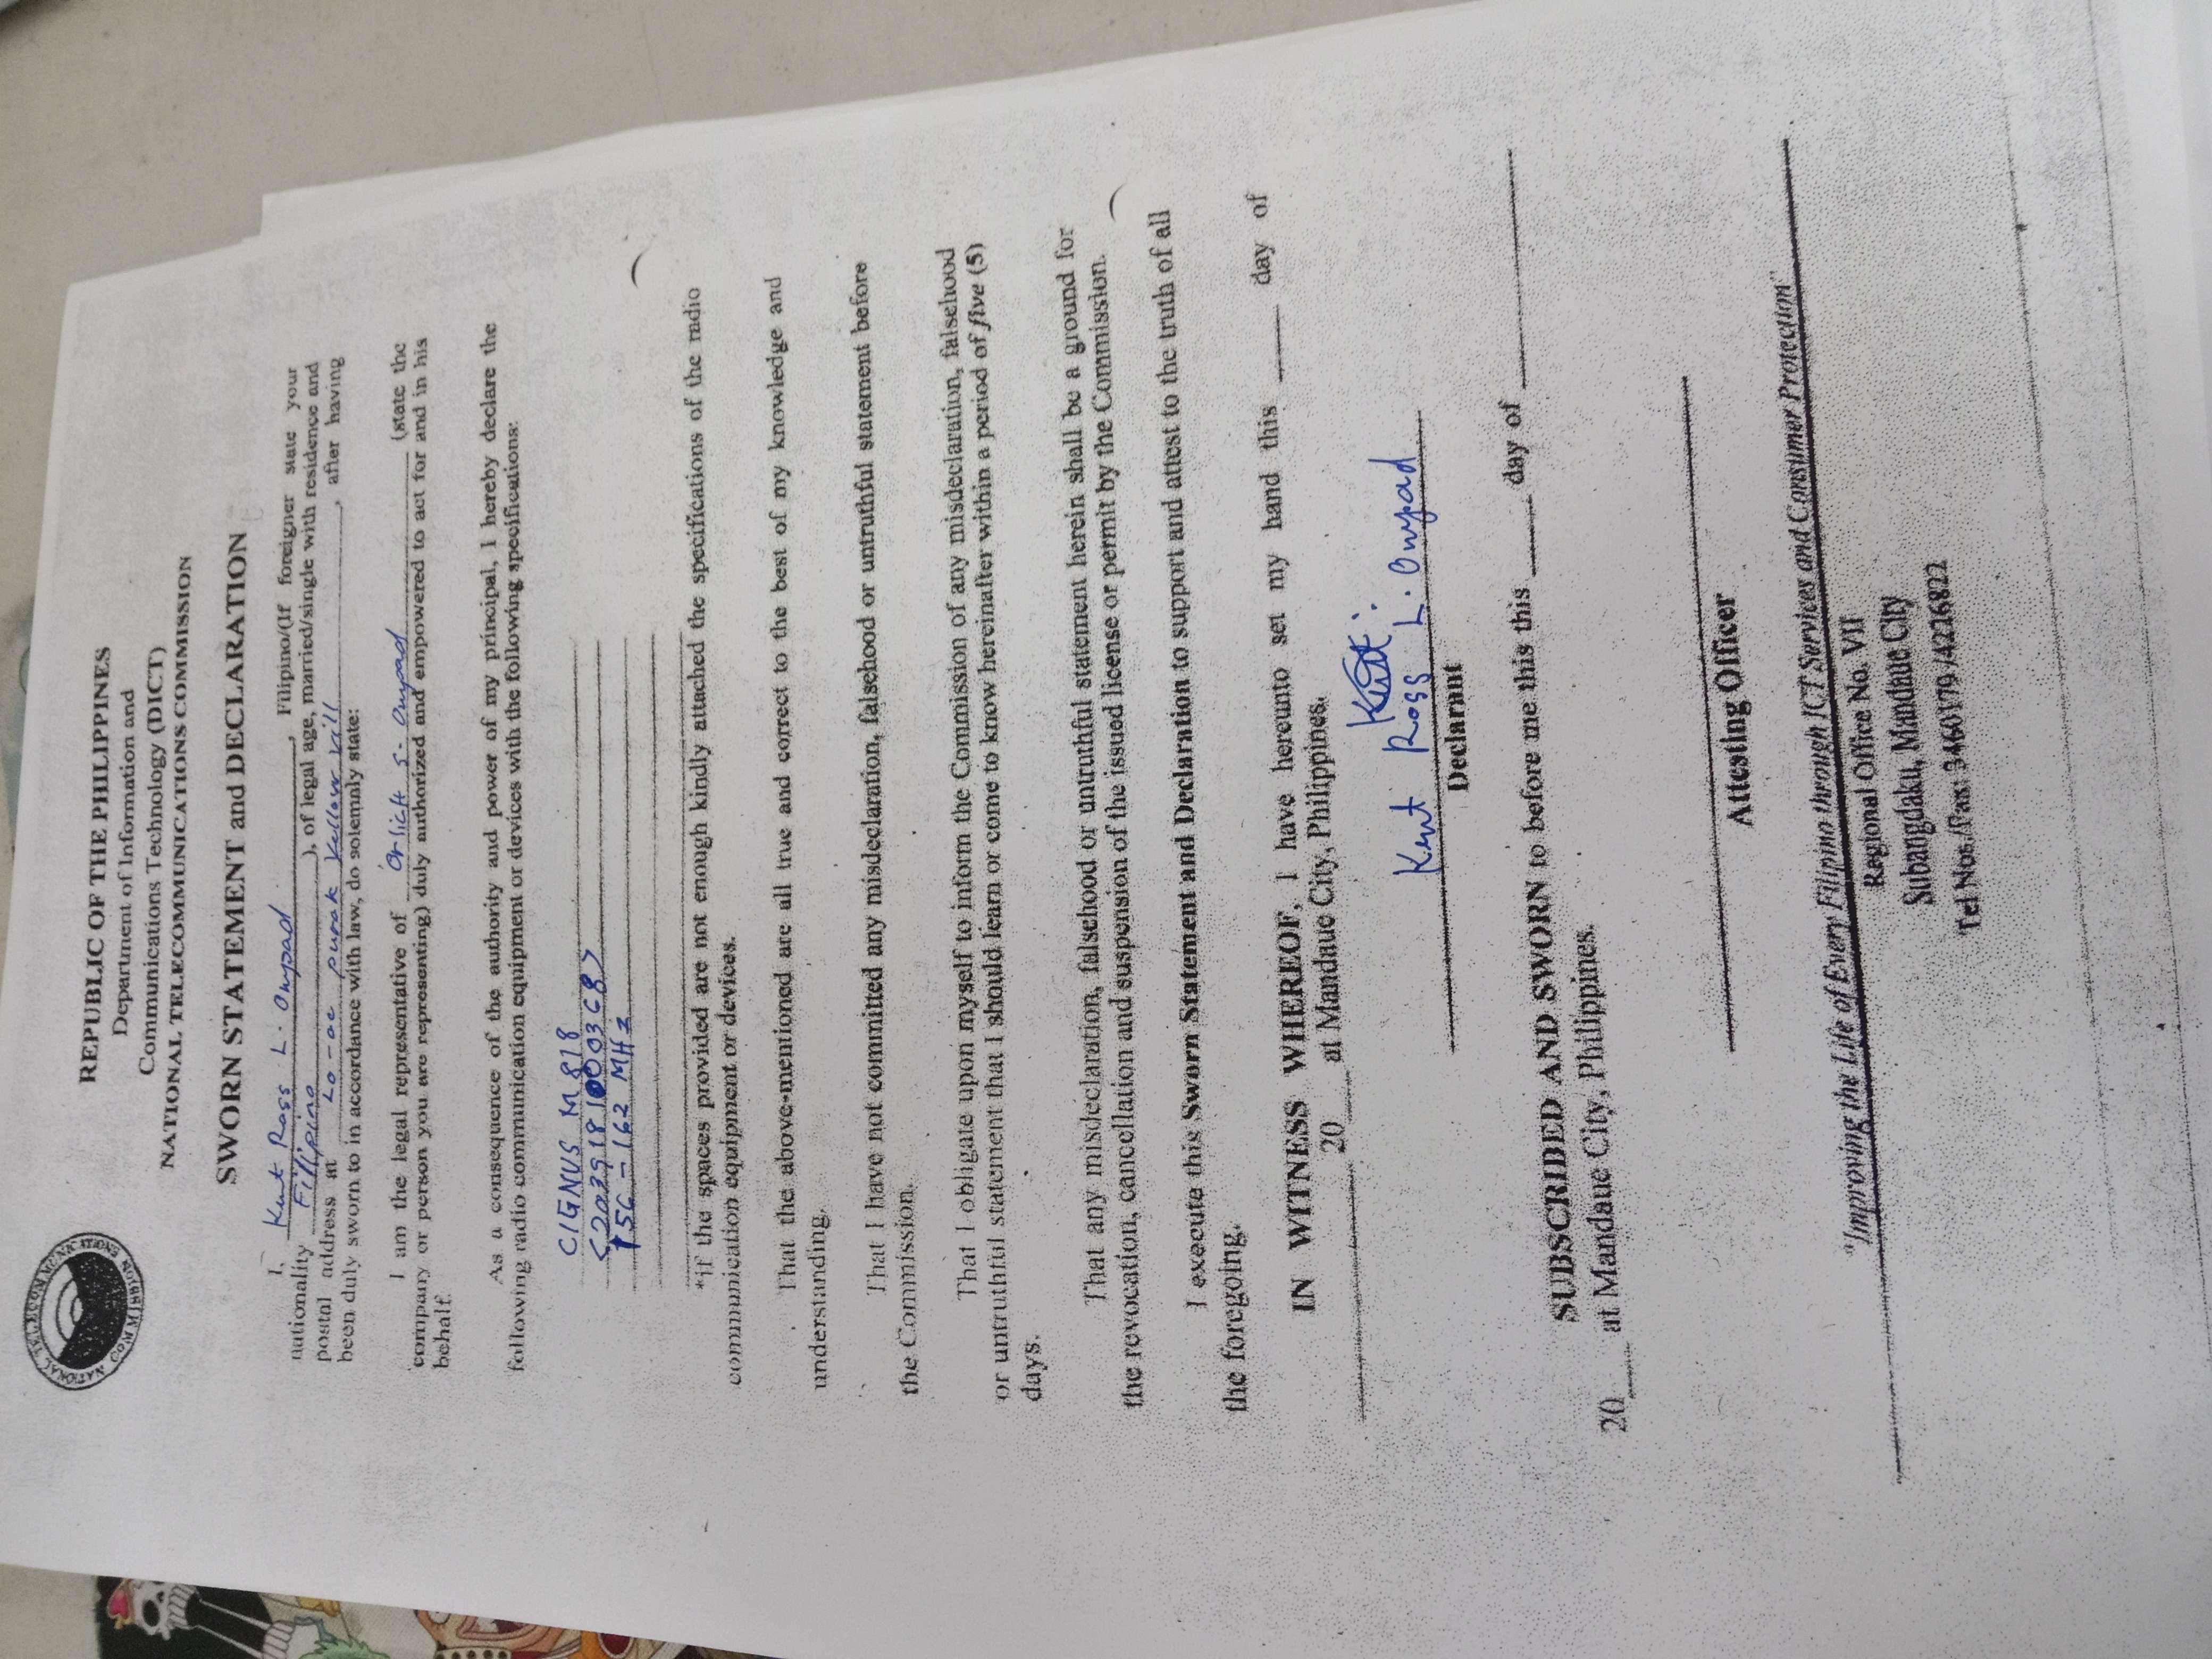 REPUBLIC OF THE PHILIPPINES
Department of Information and
Communications Technology (DICT)
NATIONAL TELECOMMUNICATIONS COMMISSION
SWORN STATEMENT and DECLARATION
I, Kent Ross L. Ompad, Filipino/(If foreigner state your
nationality Fillipino), of legal age, married/single with residence and
postal address at Lo-oc purok Yellow Vill, after having
been duly sworn to in accordance with law, do solemnly state:
I am the legal representative of Orlich S. Ompad (state the
company or person you are representing) duly authorized and empowered to act for and in his
behalf.
As a consequence of the authority and power of my principal, I hereby declare the
following radio communication equipment or devices with the following specifications:
CIGNUS M 818
156 - 162 MHz
*if the spaces provided are not enough kindly attached the specifications of the radio
communication equipment or devices.
That the above-mentioned are all true and correct to the best of my knowledge and
understanding.
That I have not committed any misdeclaration, falsehood or untruthful statement before
the Commission.
That I obligate upon myself to inform the Commission of any misdeclaration, falsehood
or untruthful statement that I should learn or come to know hereinafter within a period of five (5)
days.
That any misdeclaration, falsehood or untruthful statement herein shall be a ground for
the revocation, cancellation and suspension of the issued license or permit by the Commission.
I execute this Sworn Statement and Declaration to support and attest to the truth of all
the foregoing.
IN WITNESS WHEREOF, I have hereunto set my hand this ____ day of
____ 20__ at Mandaue City, Philippines.
Kent Ross L. Ompad
Declarant
SUBSCRIDED AND SWORN to before me this ____ day of ____
20___ at Mandaue City, Philippines.
Attesting Officer
"Improving the Life of Every Filipino through ICT Services and Consumer Protection"
Regional Office No. VII
Subangdaku, Mandaue City
Tel Nos./Fax: 3460179/4226822